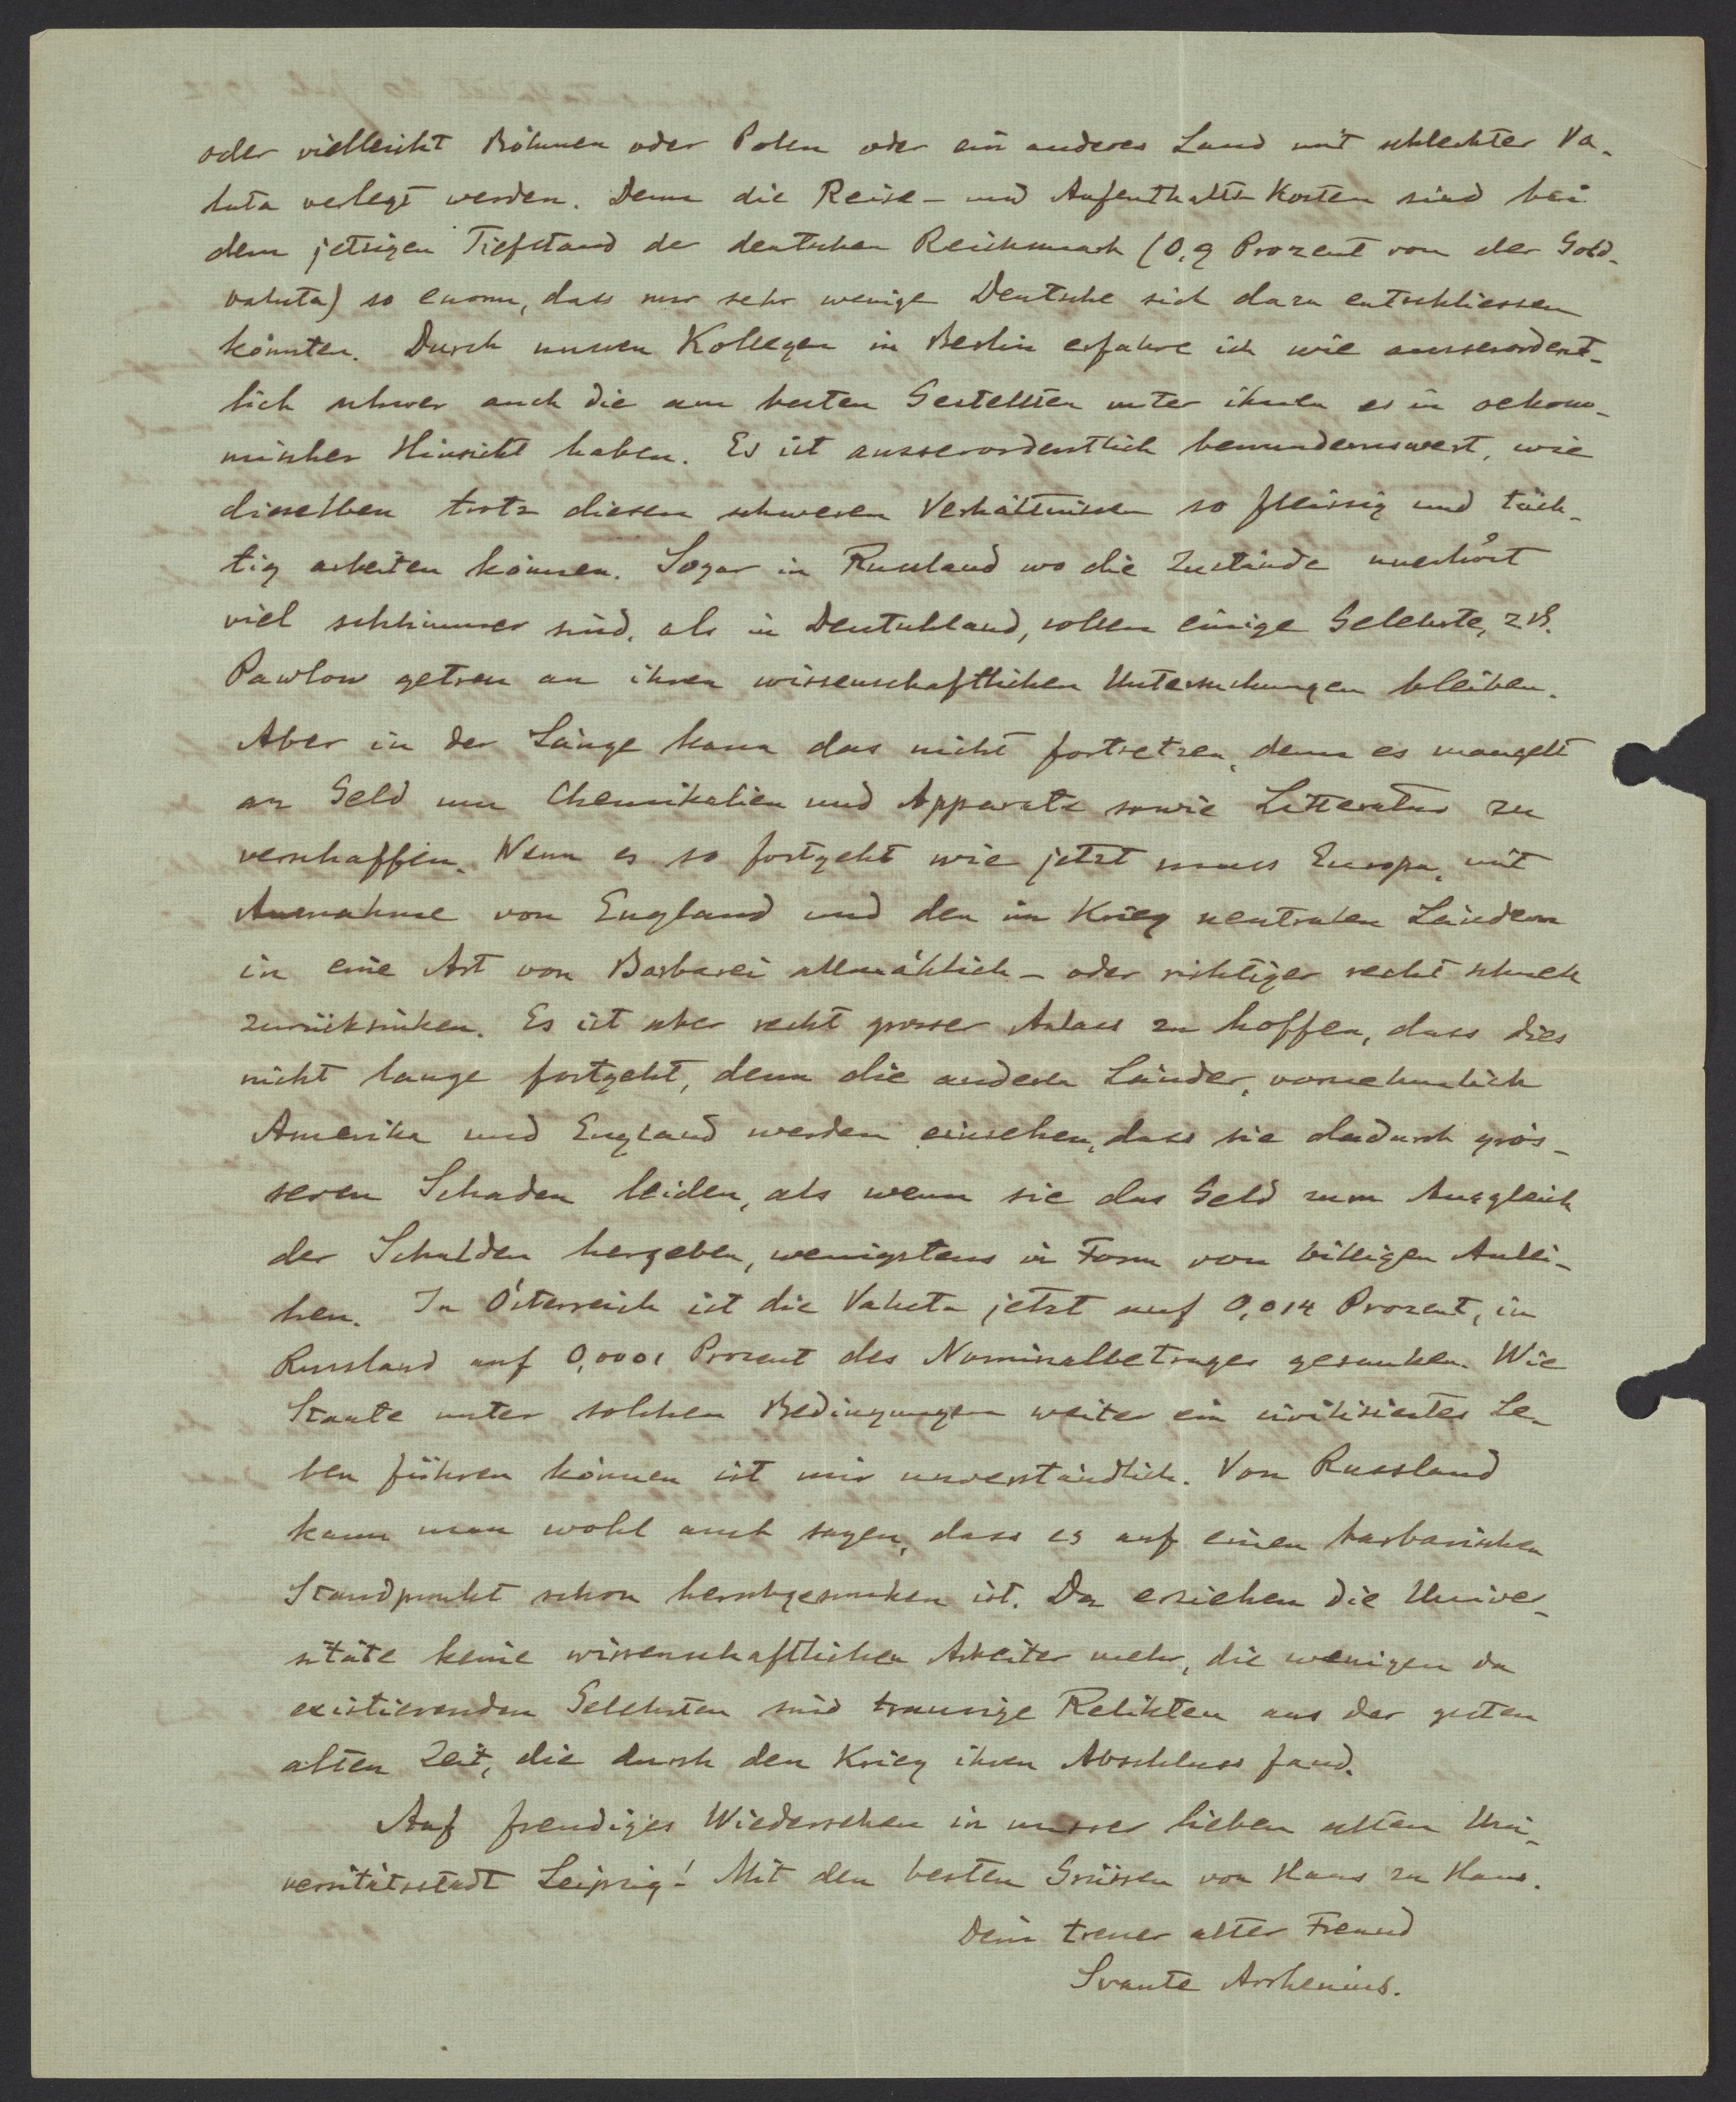 oder vielleicht Böhmen oder Polen oder ein anderes Land mit schlechter Va-
luta verlegt werden. Denn die Reise- und Aufenthalts-Kosten sind bei
dem jetzigen Tiefstand der deutschen Reichsmark (0,9 Prozent von der Gold-
valuta) so enorm, dass nur sehr wenige Deutsche sich dazu entschliessen
könnten. Durch unseren Kollegen in Berlin erfahre ich wie ausserordent-
lich schwer auch die am besten Gestellten unter ihnen es in oekono-
mischer Hinsicht haben. Es ist ausserordentlich bewundernswert, wie
dieselben trotz diesen schweren Verhältnissen so fleissig und tüch-
tig arbeiten können. Sogar in Russland wo die Zustände unerhört
viel schlimmer sind, als in Deutschland, sollen einige Gelehrte, z.B.
Pawlow getreu an ihren wissenschaftlichen Untersuchungen bleiben.
Aber in der Länge kann das nicht fortsetzen, denn es mangelt
an Geld um Chemikalien und Apparate sowie Litteratur zu
verschaffen. Wenn es so fortgeht wie jetzt muss Europa, mit
Ausnahme von England und den im Krieg neutralen Ländern
in eine Art von Barbarei allmählich - oder richtiger recht schnell
zurücksinken. Es ist aber recht grosser Anlass zu hoffen, dass dies
nicht lange fortgeht, denn die anderen Länder, vornehmlich
Amerika und England werden einsehen, dass sie dadurch grös-
seren Schaden leiden, als wenn sie das Geld zum Ausgleich
der Schulden hergeben, wenigstens in Form von billigen Anlei-
hen. In Österreich ist die Valuta jetzt auf 0,014 Prozent, in
Russland auf 0,0001 Prozent des Nominalbetrages gesunken. Wie
Staate unter solchen Bedingungen weiter ein civilisiertes Le-
ben führen können ist mir unverständlich. Von Russland
kann man wohl auch sagen, dass es auf einen barbarischen
Standpunkt schon herabgesunken ist. Da erziehen die Univer-
sitäte keine wissenschaftlichen Arbeiter mehr, die wenigen da
existierenden Gelehrten sind traurige Relikten aus der guten
alten Zeit, die durch den Krieg ihren Abschluss fand.
Auf freudiges Wiedersehen in unserer lieben alten Uni-
versitätsstadt Leipzig! Mit den besten Grüssen von Haus zu Haus.
Dein treuer alter Freund
Svante Arrhenius.